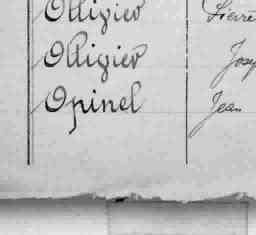 Ollivier Pierre
Ollivier
Opinel Jean